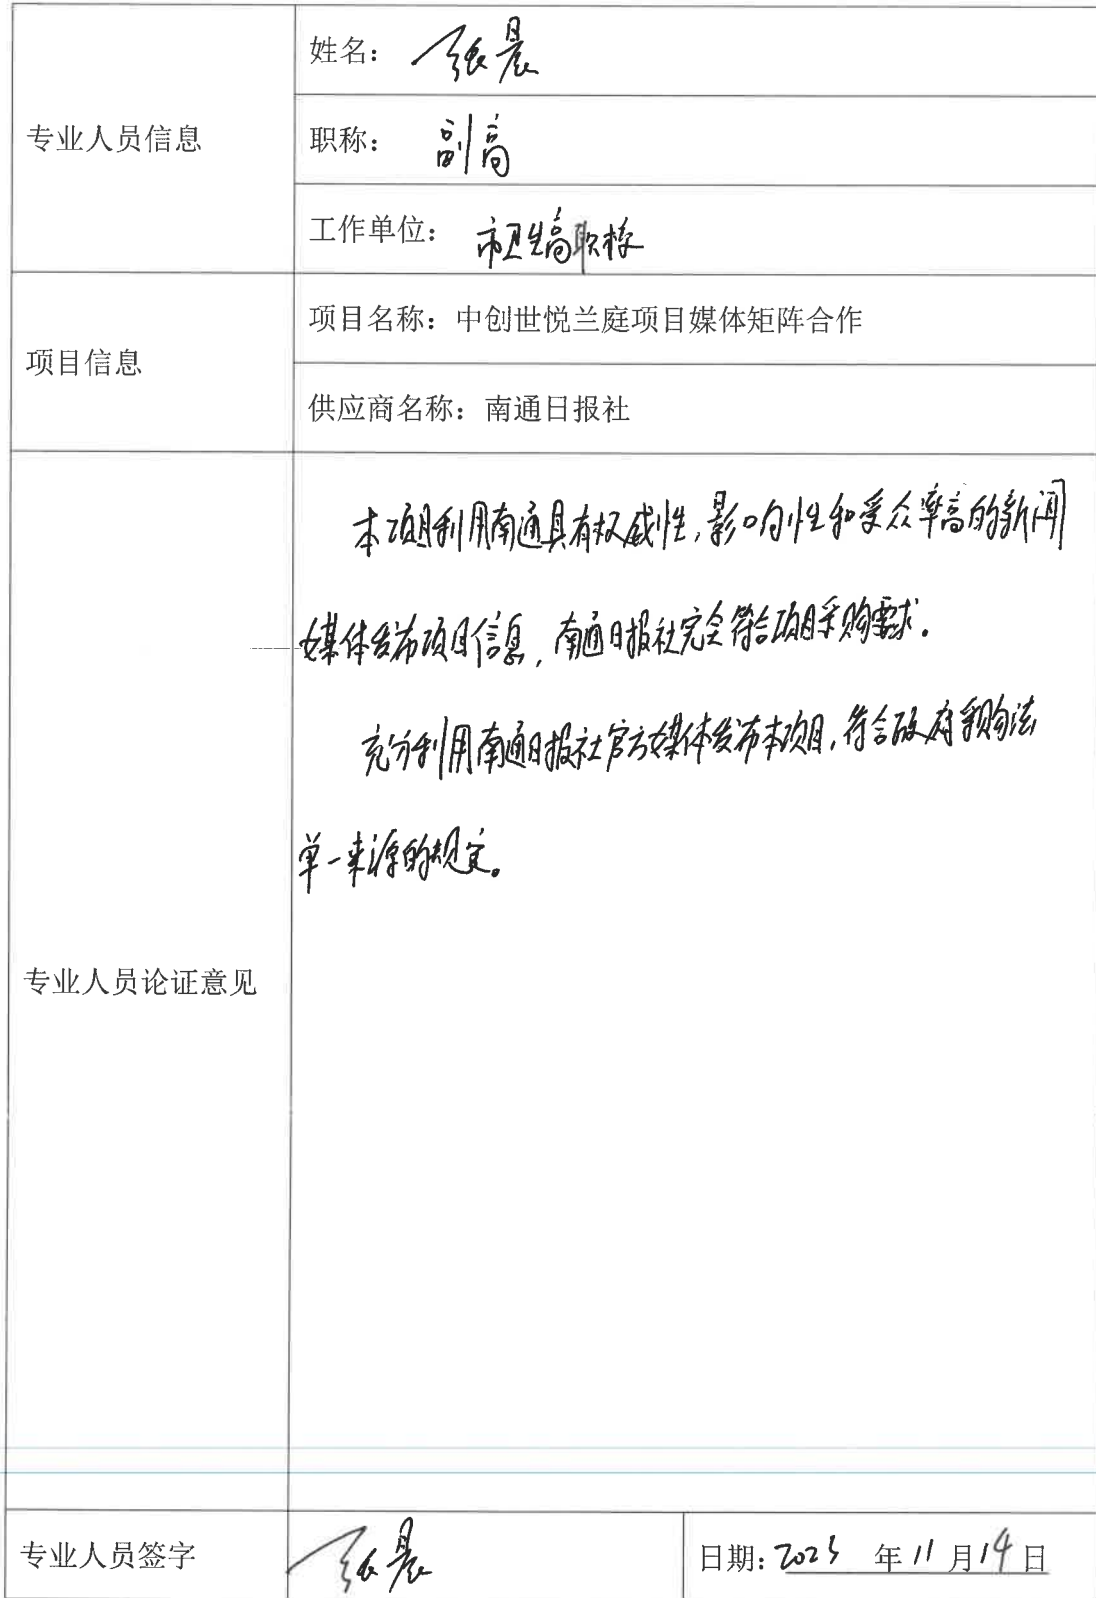 专业人员信息
姓名：张晨
职称：副高
工作单位：市卫生高职校
项目信息
项目名称：中创世悦兰庭项目媒体矩阵合作
供应商名称：南通日报社
专业人员论证意见
本项目利用南通具有权威性，影响性和受众率高的新闻
媒体发布项目信息，南通日报社完全符合项目采购需求。
充分利用南通日报社官方媒体发布本项目，符合政府采购法
单一来源的规定。
专业人员签字
张晨
日期：2023年11月14日